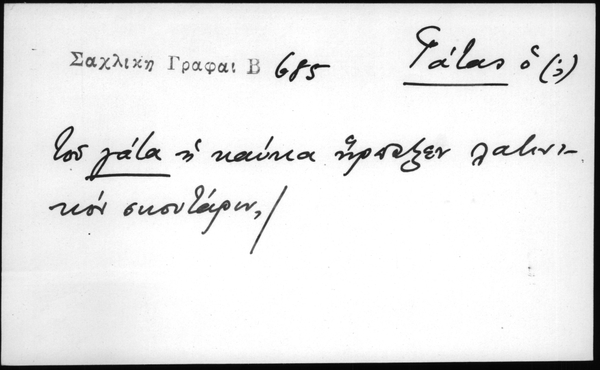 Σαχλικη Γραφαι Β 685
Γάτας ὁ (;)
τοῦ γάτα ἡ καύκα ἥρπαξεν λατινι-
κόν σκουτάριν,/